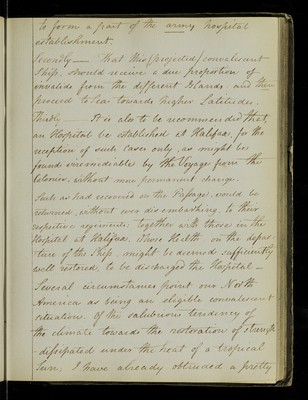 to form a part of the army hospital
establishment.
Secondly — that this (projected) convalescent
Ship, should receive a due proportion of
invalids from the different Islands, and then
proceed to Sea towards higher Latitudes.
Thirdly — It is also to be recommended that
an Hospital be established at Halifax, for the
reception of such Cases only, as might be
found irremediable by the Voyage from the
Colonies, without more permanent change.
Such as had recovered on the Passage, would be
returned, without even disembarking, to their
respective regiments, together with those in the
Hospital at Halifax, whose Health on the depar-
ture of the Ship, might be deemed sufficiently
well restored, to be discharged the Hospital —
Several circumstances point our North
America as being an eligible convalescent
situation, of the salubrious tendency of
the climate towards the restoration of strength
dissipated under the heat of a tropical
Sun, I have already obtruded a pretty